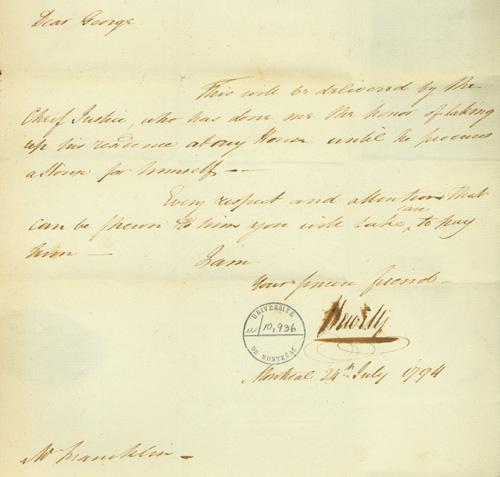 Dear George
This will be delivered by the
Cheif Justice, who has done me the honor of taking
up his residence at my House until he procures
a House for himself —
Every respect and attention that
can be shewn to him you will take care, to pay
him —
I am
Your sincere friend
UNIVERSITÉ
u/10,936
DE MONTRÉAL
Montreal 24th July 1794
Mr Francklin —